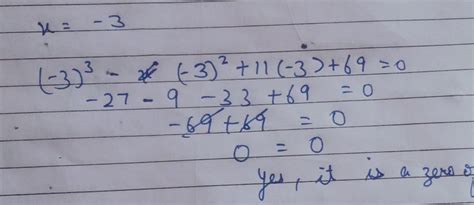 x = -3
(-3)³ - (-3)² + 11(-3) + 69 = 0
-27 - 9 - 33 + 69 = 0
-69 + 69 = 0
0 = 0
Yes, it is a zero